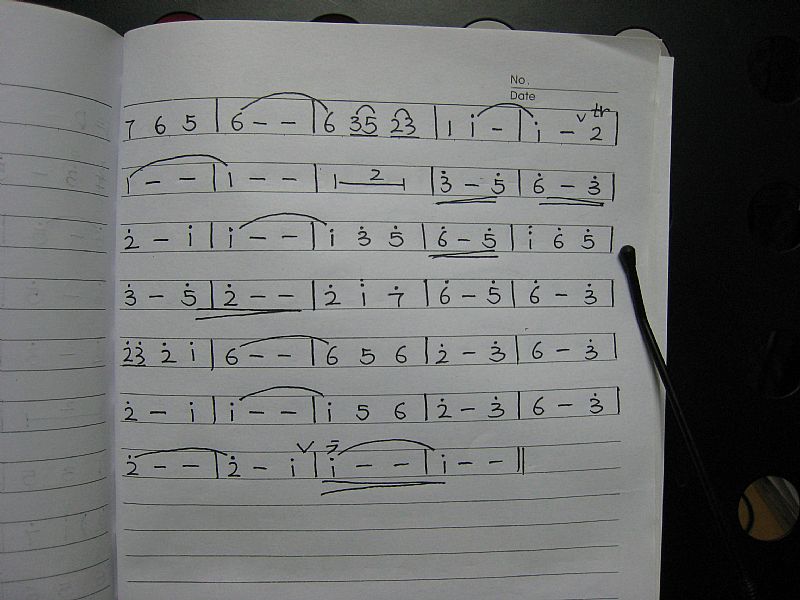 No.
Date
7 6 5 | 6 – – | 6 35 23 | 1 i – | i – ∨ tr 2 |
1 – – | 1 – – | 1 2 | 3̇ – 5̇ | 6̇ – 3̇ |
2̇ – i | i – – | i 3̇ 5̇ | 6̇ – 5̇ | i̇ 6̇ 5̇ |
3̇ – 5̇ | 2̇ – – | 2̇ i 7̇ | 6̇ – 5̇ | 6̇ – 3̇ |
2̇3̇ 2̇ i | 6 – – | 6 5 6 | 2̇ – 3̇ | 6 – 3̇ |
2̇ – i | i – – | i 5 6 | 2̇ – 3̇ | 6 – 3̇ |
2̇ – – | 2̇ – i ∨ | i – – | i – – ||